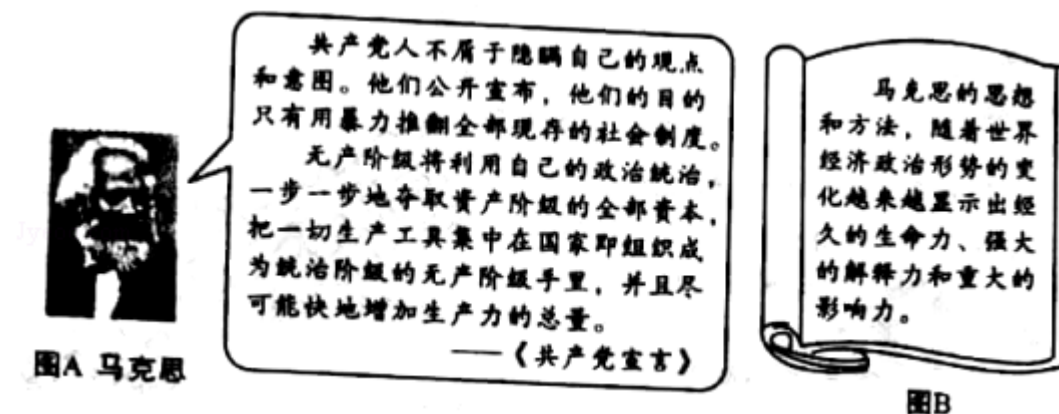 共产党人不屑于隐瞒自己的观点
和意图。他们公开宣布，他们的目的
只有用暴力推翻全部现存的社会制度。
无产阶级将利用自己的政治统治，
一步一步地夺取资产阶级的全部资本，
把一切生产工具集中在国家即组织成
为统治阶级的无产阶级手里，并且尽
可能快地增加生产力的总量。
——《共产党宣言》
图A 马克思
马克思的思想
和方法，随着世界
经济政治形势的变
化越来越显示出经
久的生命力、强大
的解释力和重大的
影响力。
图B